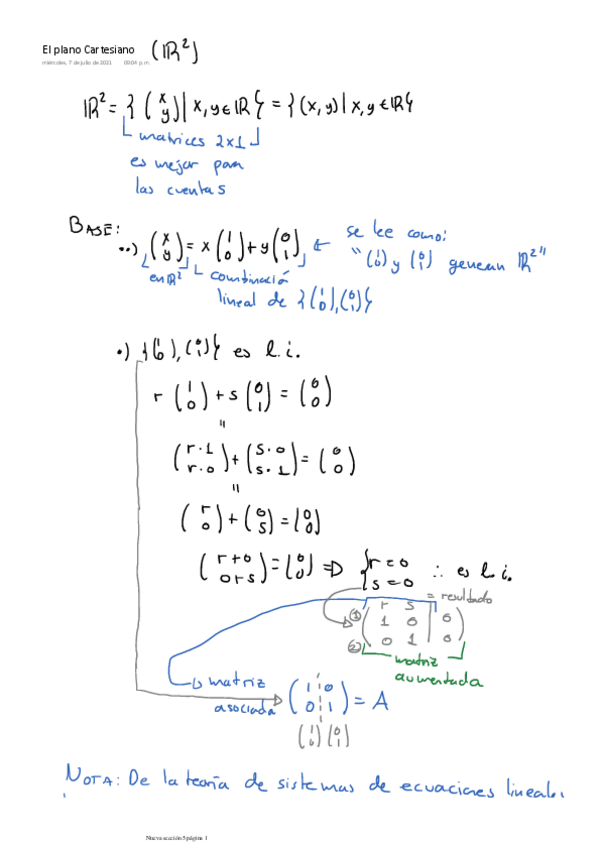 El plano Cartesiano (ℝ²)
miércoles, 7 de julio de 2021 09:04 p. m.
ℝ² = {(x y) | x, y ∈ ℝ} = {(x, y) | x, y ∈ ℝ}
matrices 2x1
es mejor para
las cuentas
BASE:
••) (x y) = x (1 0) + y (0 1), ← se lee como:
"(1 0) y (0 1) generan ℝ²"
en ℝ² combinació
lineal de {(1 0), (0 1)}
•) {(1 0), (0 1)} es l.i.
r (1 0) + s (0 1) = (0 0)
=
(r·1 r·0) + (s·0 s·1) = (0 0)
=
(r 0) + (0 s) = (0 0)
(r+0 0+s) = (0 0) ⇒ { r=0 s=0 ∴ es l.i.
r s = resultado
① ( 1 0 | 0
② 0 1 | 0 )
matriz
aumentada
matriz
asociada (1 0 0 1) = A
(1 0) (0 1)
NOTA: De la teoría de sistemas de ecuaciones lineales
Nueva sección 5 página 1